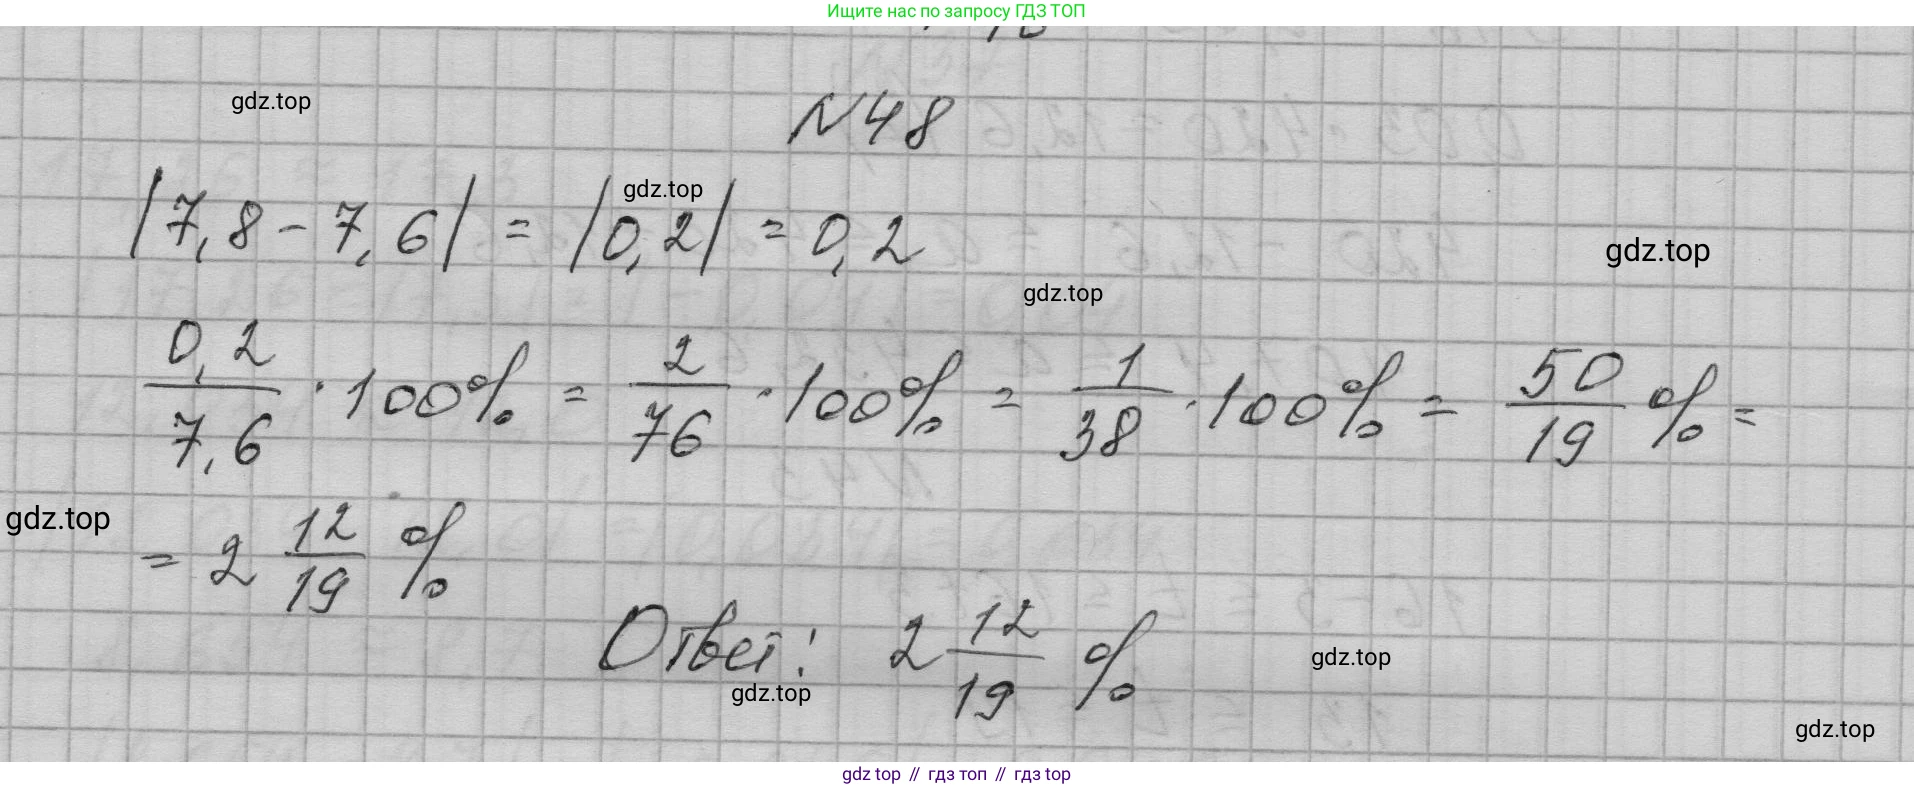 Ищите нас по запросу ГДЗ ТОП
gdz.top
N48
|7,8 - 7,6| = |0,2| = 0,2
gdz.top
gdz.top
gdz.top
0,2/7,6 · 100% = 2/76 · 100% = 1/38 · 100% = 50/19 % =
gdz.top
= 2 12/19 %
Ответ: 2 12/19 %
gdz.top
gdz.top
gdz.top
gdz top // гдз топ // гдз top